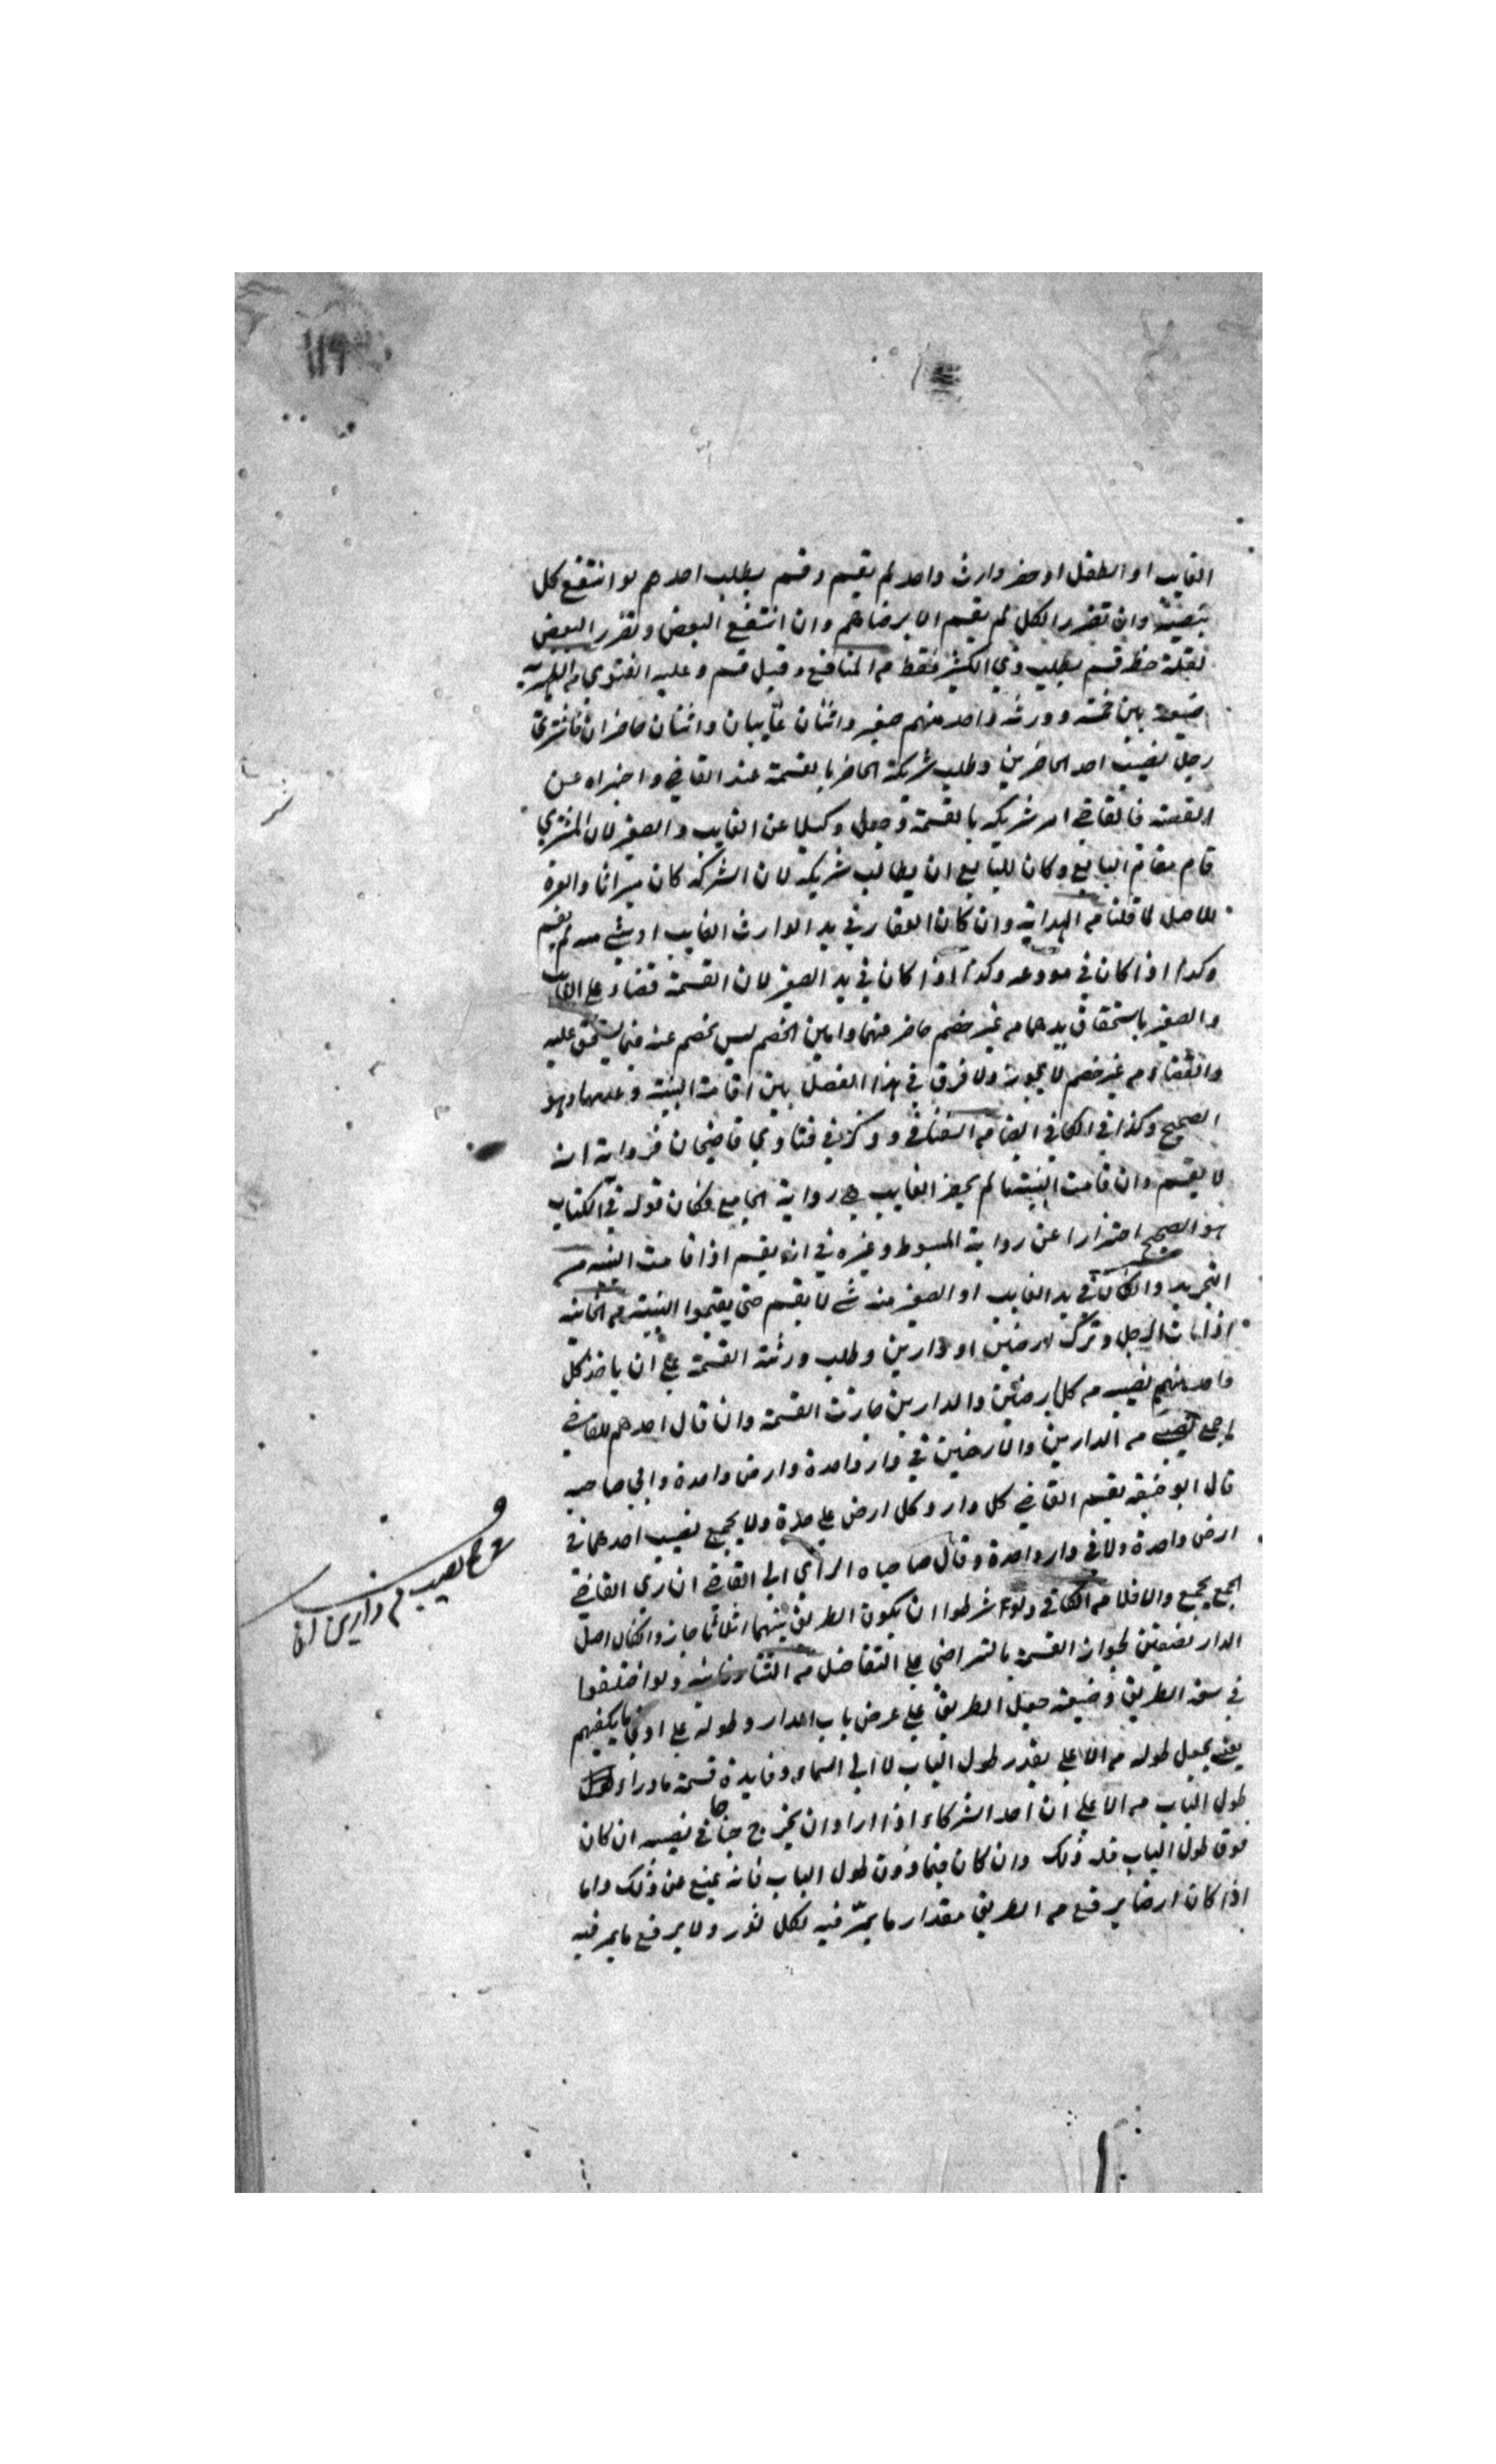 ١١٩
الغايب او الطفل او حضر وارث واحد لم يقسم وقسم بطلب احدهم لو انتفع كل
بنصيبه وان تضرر الكل لم يقسم الا برضاهم وان انتفع البعض وتضرر البعض
لقلة حظه قسم بطلب ذي الكثير فقط من المنافع وقيل قسم وعليه الفتوى من
ضيعة بين خمسة وورثة واحد منهم صغير واثنان غايبان واثنان حاضران فاشترى
رجل نصيب احد الحاضرين وطلب شريكه الحاضر بالقسمة عند القاضي واخبراه عن
القصة فالقاضي امر شريكه بالقسمة وجعل وكيلا عن الغايب والصغير لان المشتري
قام مقام البايع وكان للبايع ان يطالب شريكه لان الشركة كان ميراثا والعبرة
للاصل لما قلنا من الهداية وان كان العقار في يد الوارث الغايب او شي منه لم يقسم
وكذا اذا كان في مودعه وكذا اذا كان في يد الصغير لان القسمة قضاء على الغايب
والصغير باستحقاق يدهما من غير خصم حاضر منهما وامين الخصم ليس بخصم عنه فيما يستحق عليه
والقضاء من غير خصم لا يجوز ولا فرق في هذا الفصل بين اقامة البينة وعدمها وهو
الصحيح وكذا في الكافي ايضا من السغناقي وذكر في فتاوي قاضيخان فرواية انه
لا يقسم وان قامت البينة ما لم يحضر الغايب هي رواية الجامع وكان قوله في الكتاب
هو الصحيح احترازا عن رواية المبسوط وغيره في انه يقسم اذا قامت البينة من
التجريد وان كان في يد الغايب او الصغير منه شي لا يقسم حتى يقيموا البينة من الخانية
اذا مات الرجل وترك ارضين او دارين وطلب ورثته القسمة على ان ياخذ كل
واحد منهم نصيبه من كل ارضين والدارين جازت القسمة وان قال احدهم للقاضي
اجمع نصيبي من الدارين والارضين في دار واحدة وارض واحدة وابى صاحبه
قال ابو حنيفة يقسم القاضي كل دار وكل ارض على حدة ولا يجمع نصيب احدهما في
ارض واحدة ولا في دار واحدة وقال صاحباه الراي الى القاضي ان راى القاضي
الجمع يجمع والا فلا من الكافي ولو شرطوا ان يكون الطريق بينهما اثلاثا جاز وان كان اصل
الدار نصفين لجواز القسمة بالتراضي على التفاضل من التتارخانية ولو اختلفوا
في سعة الطريق وضيقه جعل الطريق على عرض باب الدار وطوله على ادنى ما يكفيهم
يعني يجعل طوله من الاعلى بقدر طول الباب لا الى السماء وفايدة قسمة ما وراء
طول الباب من الاعلى ان احد الشركاء اذا اراد ان يخرج جناحا في نصيبه ان كان
فوق طول الباب فله ذلك وان كان فيما دون طول الباب فانه يمنع عن ذلك واما
اذا كان ارضا يرفع من الطريق مقدار ما يمر فيه لكل ثور ولا يرفع ما يمر فيه